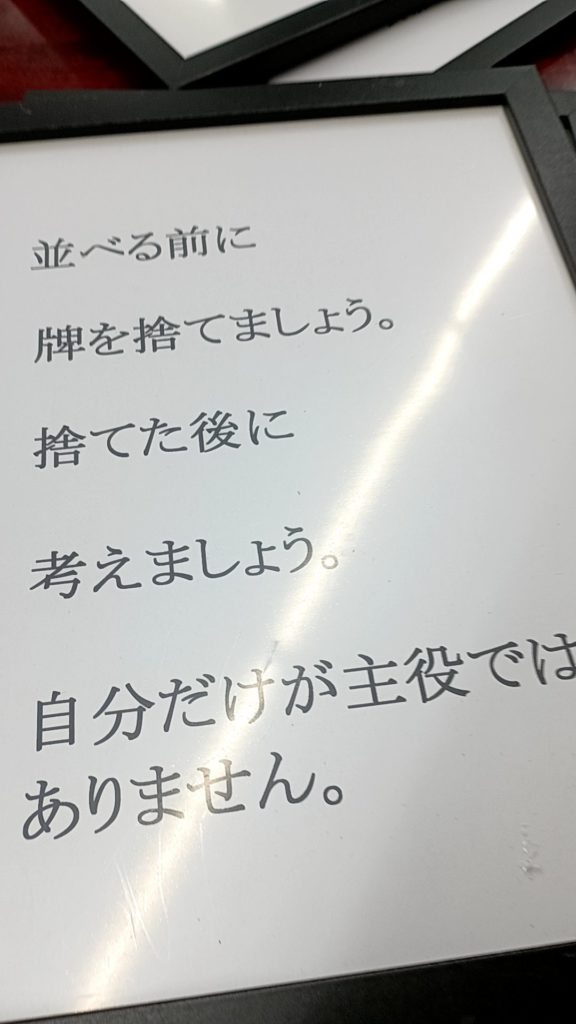 並べる前に
牌を捨てましょう。
捨てた後に
考えましょう。
自分だけが主役では
ありません。